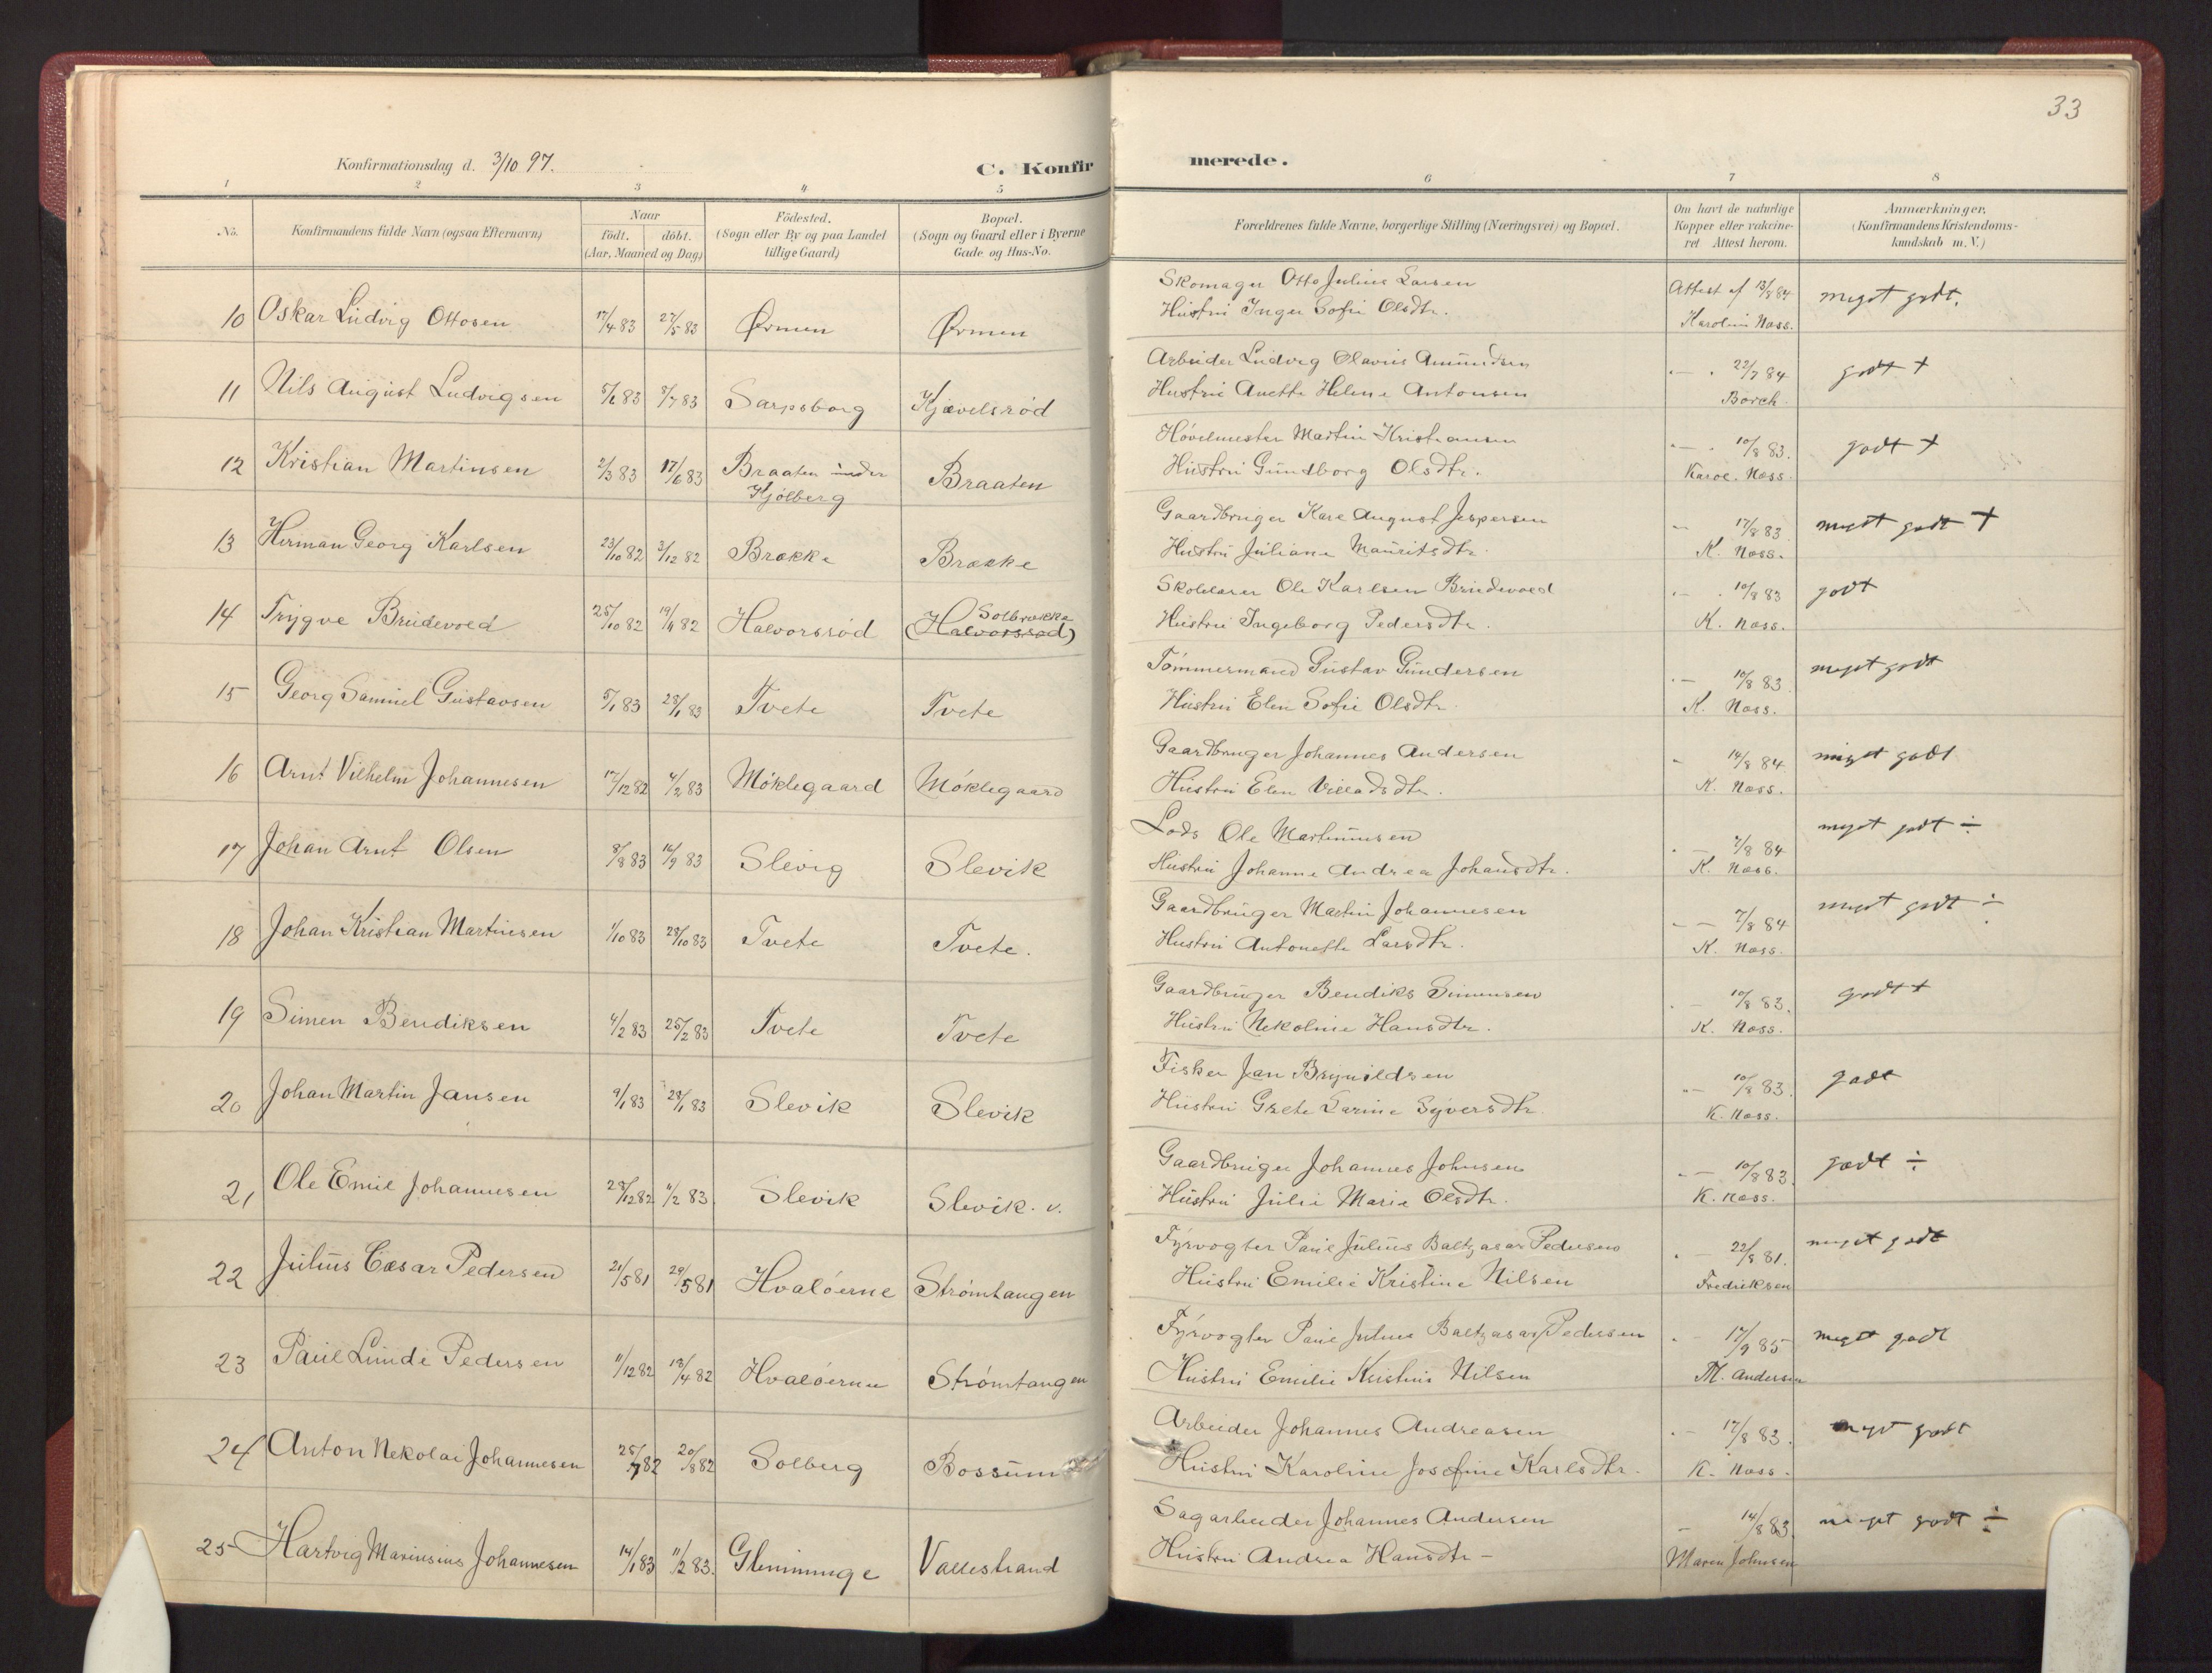 33
Konfirmationsdag d. 3/10 97.
C. Konfirmerede.
1 2 3 4 5 6 7 8
No.
Konfirmandens fulde Navn (ogsaa Efternavn)
Naar
födt. döbt.
(Aar, Maaned og Dag)
Födested.
(Sogn eller By og paa Landet
tillige Gaard)
Bopæl.
(Sogn og Gaard eller i Byerne
Gade og Hus-No.
Forældrenes fulde Navne, borgerlige Stilling (Næringsvei) og Bopæl.
Om havt de naturlige
Kopper eller vakcine-
ret Attest herom.
Anmærkninger.
(Konfirmandens Kristendoms-
kundskab m. V.)
10 Oskar Ludvig Ottosen 17/4 83 27/5 83 Ørmen Ørmen
Skomager Otto Julius Larsen
Hustru Inger Sofie Olsdtr.
Attest af 13/8 84
Karoline Næss.
meget godt.
11 Nils August Ludvigsen 5/6 83 8/7 83 Sarpsborg Kjævelsrød
Arbeider Ludvig Olavus Amundsen
Hustru Anette Helene Antonsen
22/7 84
Borch.
godt +
12 Kristian Martinsen 2/3 83 17/6 83 Braaten under
Kjølberg
Braaten
Høvelmester Martin Kristiansen
Hustru Gundborg Olsdtr.
10/8 83.
Karol. Næss.
godt +
13 Herman Georg Karlsen 23/10 82 3/12 82 Brække Brække
Gaardbruger Karl August Jespersen
Hustru Juliane Mauritsdtr.
17/8 83
K. Næss.
meget godt +
14 Trygve Brudevold 25/10 82 19/11 82 Halvorsrød Solbrække
(Halvorsrød)
Skolelærer Ole Karlsen Brudevold
Hustru Ingeborg Pedersdtr.
10/8 83
K. Næss.
godt
15 Georg Samuel Gustavsen 5/1 83 28/1 83 Tvete Tvete
Tömmermand Gustav Gundersen
Hustru Elen Sofie Olsdtr.
10/8 83.
K. Næss.
meget godt
16 Arnt Vilhelm Johannesen 17/12 82 4/2 83 Möklegaard Möklegaard
Gaardbruger Johannes Andersen
Hustru Elen Villadsdtr.
14/8 84.
K. Næss.
meget godt
17 Johan Arnt Olsen 8/8 83 16/9 83 Slevig Slevik
Lods Ole Martinusen
Hustru Johanne Andrea Johansdtr.
7/8 84
K. Næss.
meget godt ÷
18 Johan Kristian Martinsen 1/10 83 28/10 83 Tvete Tvete.
Gaardbruger Martin Johannesen
Hustru Antonette Larsdtr.
7/8 84
K. Næss.
meget godt ÷
19 Simen Bendiksen 4/2 83 25/2 83 Tvete Tvete
Gaardbruger Bendiks Simensen
Hustru Nekoline Hansdtr.
10/8 83.
K. Næss.
godt +
20 Johan Martin Jansen 9/1 83 28/1 83 Slevik Slevik
Fisker Jan Brynildsen
Hustru Grete Sarine Syversdtr.
10/8 83.
K. Næss.
godt
21 Ole Emil Johannesen 28/12 82 11/2 83. Slevik Slevik. v.
Gaardbruger Johannes Johnsen
Hustru Julie Marie Olsdtr.
10/8 83.
K. Næss.
godt ÷
22 Julius Cæsar Pedersen 21/5 81 29/5 81 Hvalöerne Strömtangen
Fyrvogter Paul Julius Baltzasar Pedersen
Hustru Emilie Kristine Nilsen
22/8 81.
Fredriksen
meget godt
23 Paul Lunde Pedersen 11/12 82 18/4 82 Hvalöerne Strömtangen
Fyrvogter Paul Julius Baltzasar Pedersen
Hustru Emilie Kristine Nilsen
17/9 85
M. Andersen
meget godt
24 Anton Nekolai Johannesen 25/7 82 20/8 82 Solberg Bossum
Arbeider Johannes Andreasen
Hustru Karoline Josefine Karlsdtr.
17/8 83.
K. Næss.
meget godt
25 Hartvig Marinsius Johannesen 14/1 83 11/2 83. Glemminge Vallestrand
Sagarbeider Johannes Andersen
Hustru Andrea Hansdtr –
14/8 83.
Maren Johnsen
meget godt ÷